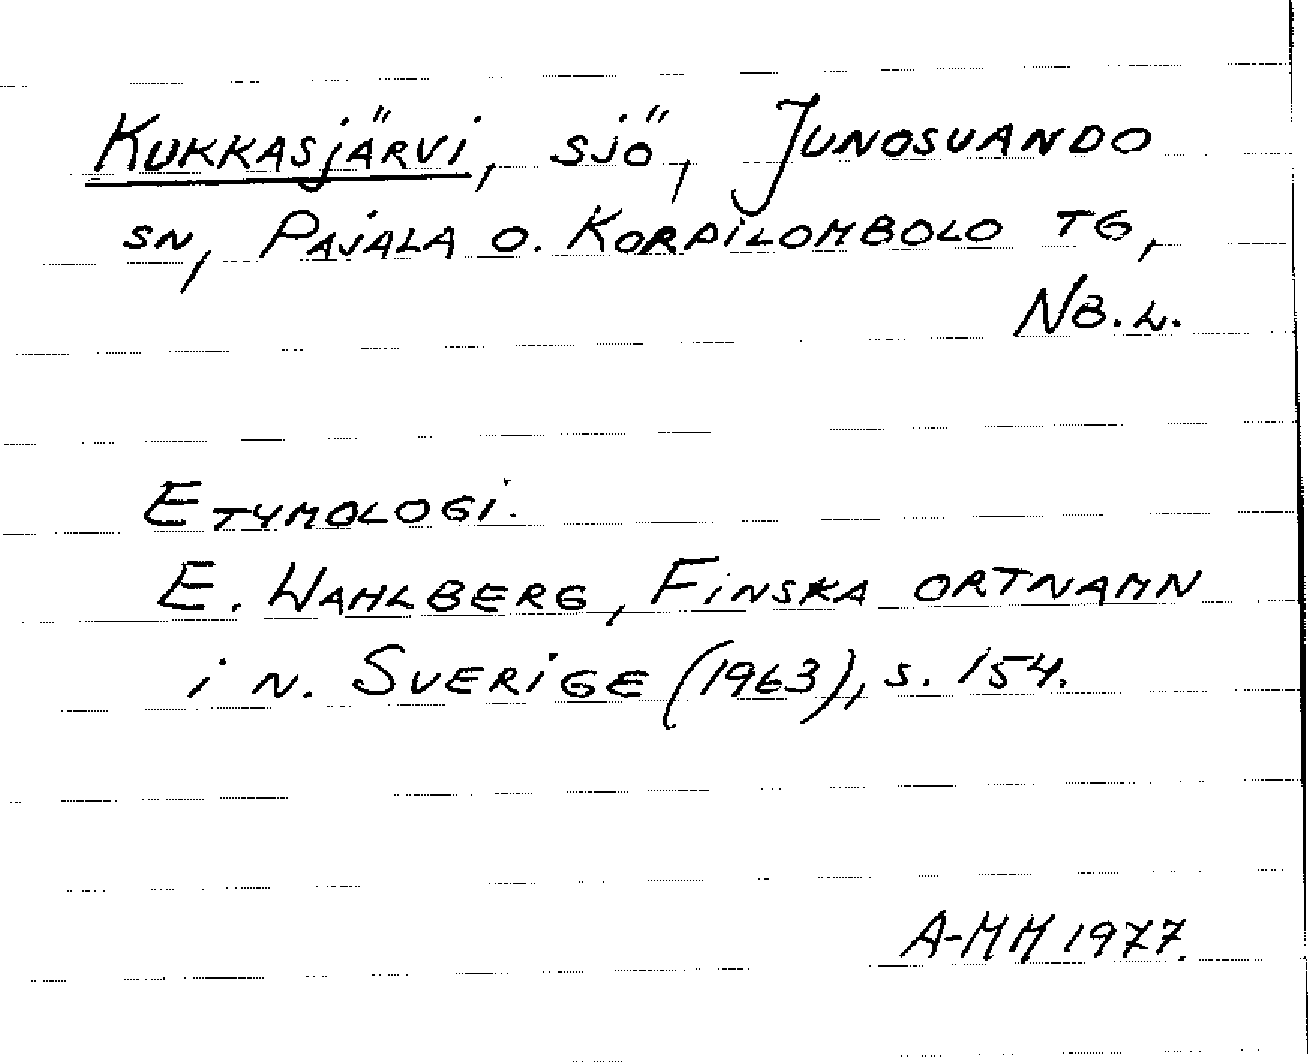 Kukkasjärvi, sjö, Junosuando
sn, Pajala o. Korpilombolo tg,
Nb.l.
Etymologi.
E. Wahlberg, Finska ortnamn
i n. Sverige (1963), s. 154.
A-MM 1977.